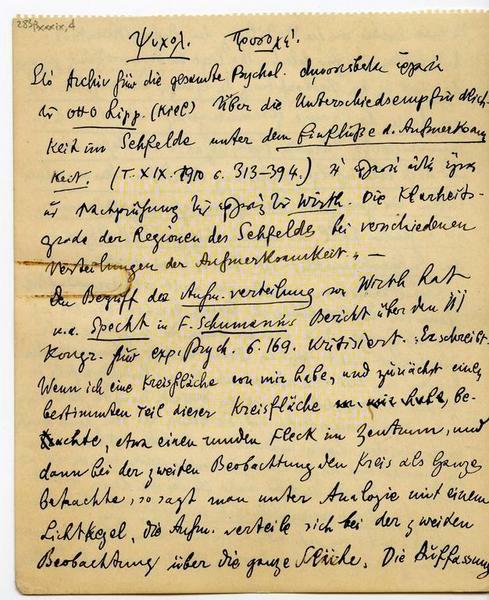 285βxxxix, 4
Ψυχολ. Προσοχή.
Στὸ Archiv für die gesamte Psychol. δημοσιεύεται ἐργασία
τοῦ Otto Lipp. (Kiel) Über die Unterschiedsempfindlich-
keit im Sehfelde unter dem Einfluße d. Aufmerksam
keit. (T. XIX. 1910 σ. 313-394.) ἡ ἐργασία αὐτὴ
Nachprüfung τῆς ἐργασίας τοῦ Wirth. Die Klarheits-
grade der Regionen des Sehfeldes bei verschiedenen
Verteilungen der Aufmerksamkeit. —
Den Begriff der Aufm.verteilung von Wirth hat
u.a. Specht in F. Schumann's Bericht über den III
Kongr. für exp. Psych. S. 169. kritisiert. Er schreibt.
Wenn ich eine Kreisfläche vor mir habe, und zunächst einen
bestimmten Teil dieser Kreisfläche be-
trachte, etwa einen runden Fleck im Zentrum, und
dann bei der zweiten Beobachtung den Kreis als Ganzes
betrachte, so sagt man unter Analogie mit einem
Lichtkegel, die Aufm. verteile sich bei der zweiten
Beobachtung über die ganze Fläche. Die Auffassung